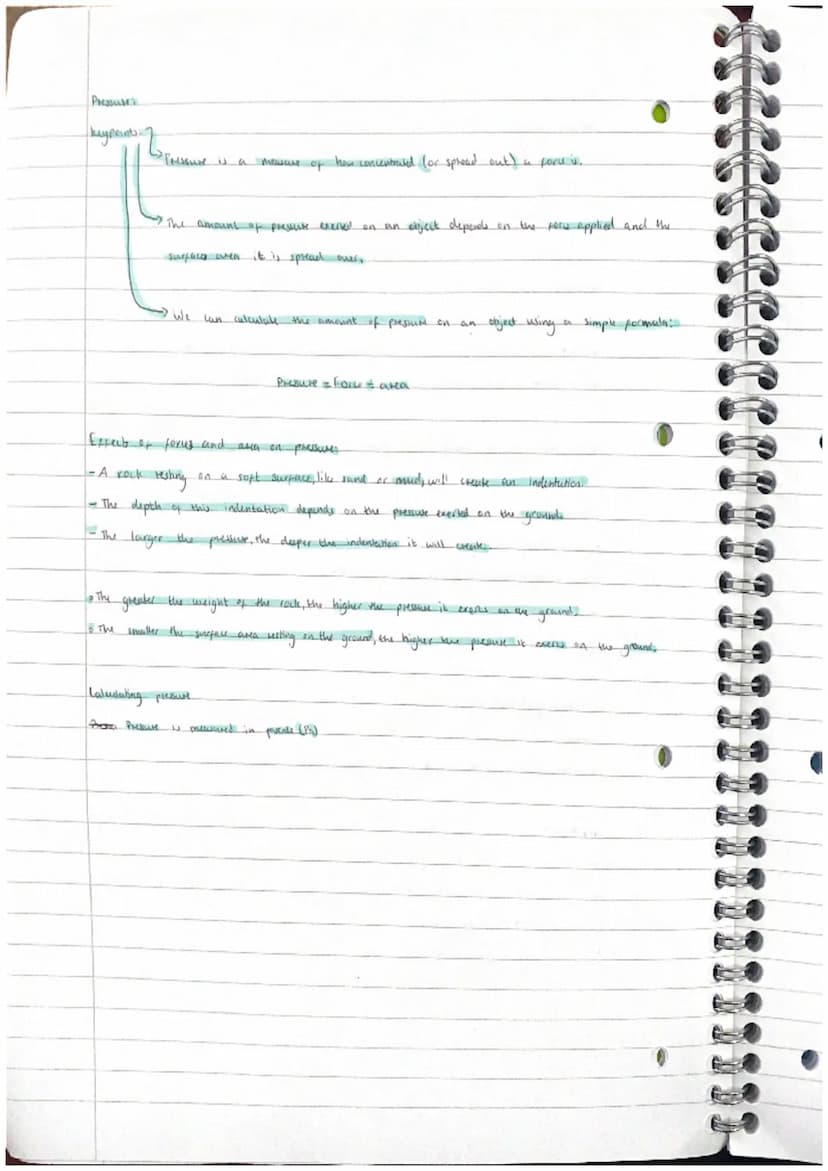 Pressure:
Keypoints:
Pressure is a measure of how concentrated (or spread out) a force is.
The amount of pressure exerted on an object depends on the force applied and the
surface area it is spread over.
We can calculate the amount of pressure on an object using a simple formula:
Pressure = Force ÷ area
Effect of forces and area on pressure:
- A rock resting on a soft surface, like sand or mud, will create an indentation.
- The depth of this indentation depends on the pressure exerted on the ground.
- The larger the pressure, the deeper the indentation it will create.
• The greater the weight of the rock, the higher the pressure it exerts on the ground.
• The smaller the surface area resting on the ground, the higher the pressure it exerts on the ground.
Calculating pressure
Pressure is measured in pascals (Pa)